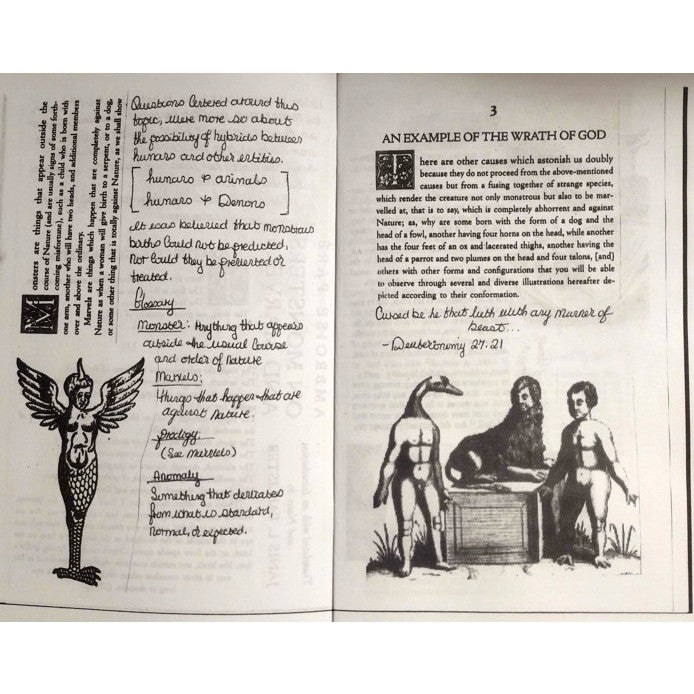 Monsters are things that appear outside the
course of Nature (and are usually signs of some forth-
coming misfortune), such as a child who is born with
one arm, another who will have two heads, and additional members
over and above the ordinary.
Marvels are things which happen that are completely against
Nature as when a woman will give birth to a serpent, or to a dog,
or some other thing that is totally against Nature, as we shall show
Questions Centered around this
topic, were more so about
the possibility of hybrids between
humans and other entities.
humans & animals
humans & Demons
It was believed that monstrous
births Could not be predicted,
not Could they be prevented or
treated.
Glossary
Monster: Anything that appears
outside the usual Course
and order of nature
Marvels:
things that happen that are
against nature.
Prodigy:
(See Marvels)
Anomaly
Something that deviates
from what is standard,
normal, or expected.
3
AN EXAMPLE OF THE WRATH OF GOD
There are other causes which astonish us doubly
because they do not proceed from the above-mentioned
causes but from a fusing together of strange species,
which render the creature not only monstrous but also to be mar-
velled at, that is to say, which is completely abhorrent and against
Nature; as, why are some born with the form of a dog and the
head of a fowl, another having four horns on the head, while another
has the four feet of an ox and lacerated thighs, another having the
head of a parrot and two plumes on the head and four talons, [and]
others with other forms and configurations that you will be able
to observe through several and diverse illustrations hereafter de-
picted according to their conformation.
Cursed be he that lieth with any manner of
beast...
- Deuteronomy 27:21